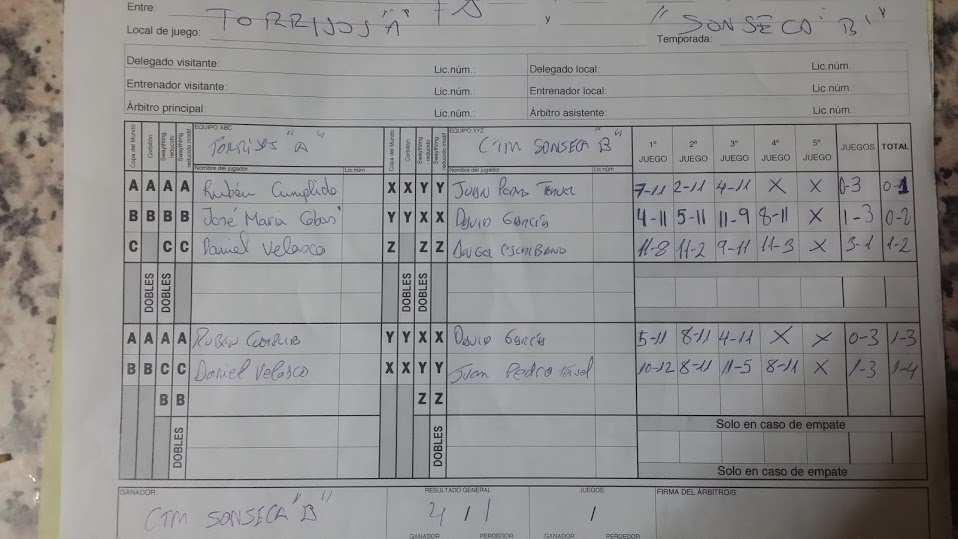 Entre: TORRIJOS "A" y "SONSECA "B"
Local de juego: Temporada:
Delegado visitante: Lic.núm.: Delegado local: Lic.núm.:
Entrenador visitante: Lic.núm.: Entrenador local: Lic.núm.:
Árbitro principal: Lic.núm.: Árbitro asistente: Lic.núm.:
Copa del Mundo Corbillón Swaythling reducido Swaythling reducido modif. EQUIPO ABC TORRIJOS "A" Copa del Mundo Corbillón Swaythling reducido Swaythling reducido modif. EQUIPO XYZ CTM SONSECA "B" 1º JUEGO 2º JUEGO 3º JUEGO 4º JUEGO 5º JUEGO JUEGOS TOTAL
Nombre del jugador Lic.núm. Nombre del jugador Lic.núm.
A A A A Rubén Cumplido X X Y Y Juan 7-11 2-11 4-11 X X 0-3 0-1
B B B B José María Cobas Y Y X X David García 4-11 5-11 11-9 8-11 X 1-3 0-2
C C C Daniel Velasco Z Z Z ESCRIBANO 11-8 11-2 9-11 11-3 X 3-1 1-2
DOBLES DOBLES DOBLES DOBLES
A A A A RUBÉN Y Y X X David García 5-11 8-11 4-11 X X 0-3 1-3
B B C C Daniel Velasco X X Y Y Juan Pedro 10-12 8-11 11-5 8-11 X 1-3 1-4
B B Z Z
Solo en caso de empate
DOBLES DOBLES
Solo en caso de empate
GANADOR RESULTADO GENERAL JUEGOS FIRMA DEL ÁRBITRO/S
CTM SONSECA "B" 4 / 1 /
GANADOR PERDEDOR GANADOR PERDEDOR